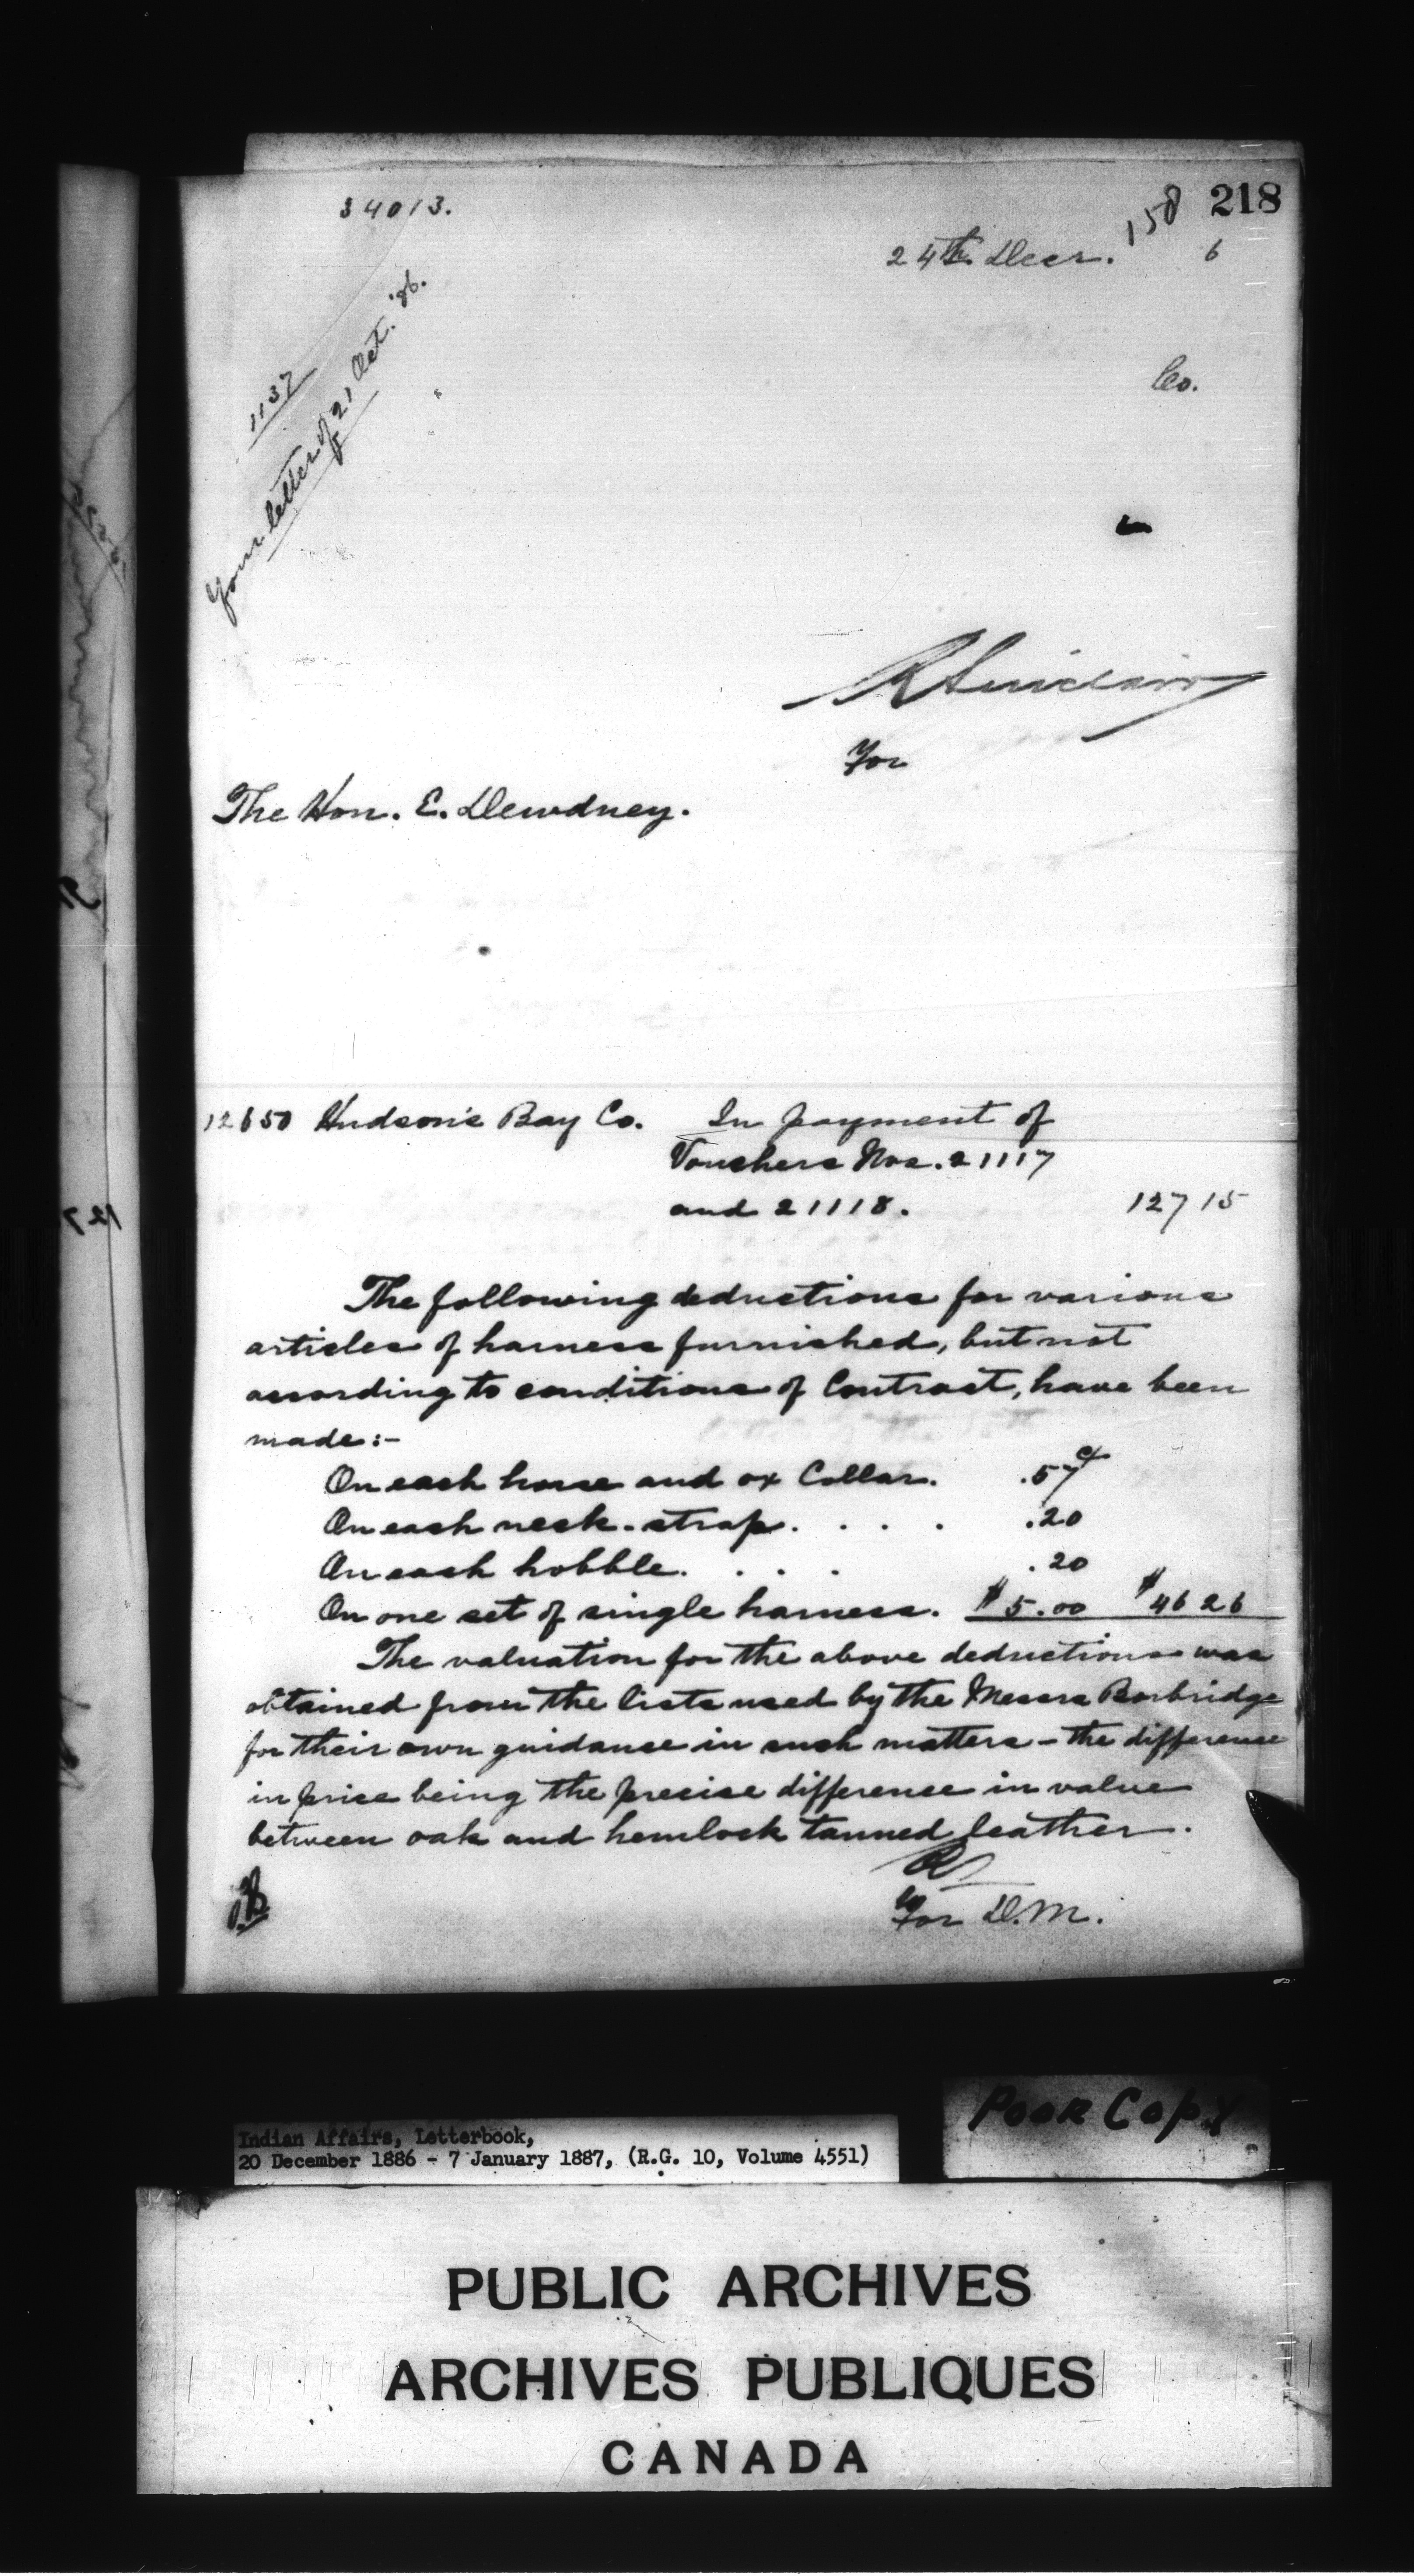 34013.
158 218
24th Decr. 6
1137
Your letter of 21 Oct. '86.
Co.
R Sinclair
For
The Hon. E. Dewdney.
12650 Hudson's Bay Co. In payment of
Vouchers Nos. 21117
and 21118. 127 15
The following deductions for various
articles of harness furnished, but not
according to conditions of Contract, have been
made:-
On each horse and ox Collar. .57c
On each neck-strap. . . . .20
On each hobble. . . . .20
On one set of single harness. $5.00 $46 26
The valuation for the above deductions was
obtained from the lists used by the Messrs Borbridge
for their own guidance in such matters - the difference
in price being the precise difference in value
between oak and hemlock tanned leather.
For D.M.
Poor Copy
Indian Affairs, Letterbook,
20 December 1886 - 7 January 1887, (R.G. 10, Volume 4551)
PUBLIC ARCHIVES
ARCHIVES PUBLIQUES
CANADA